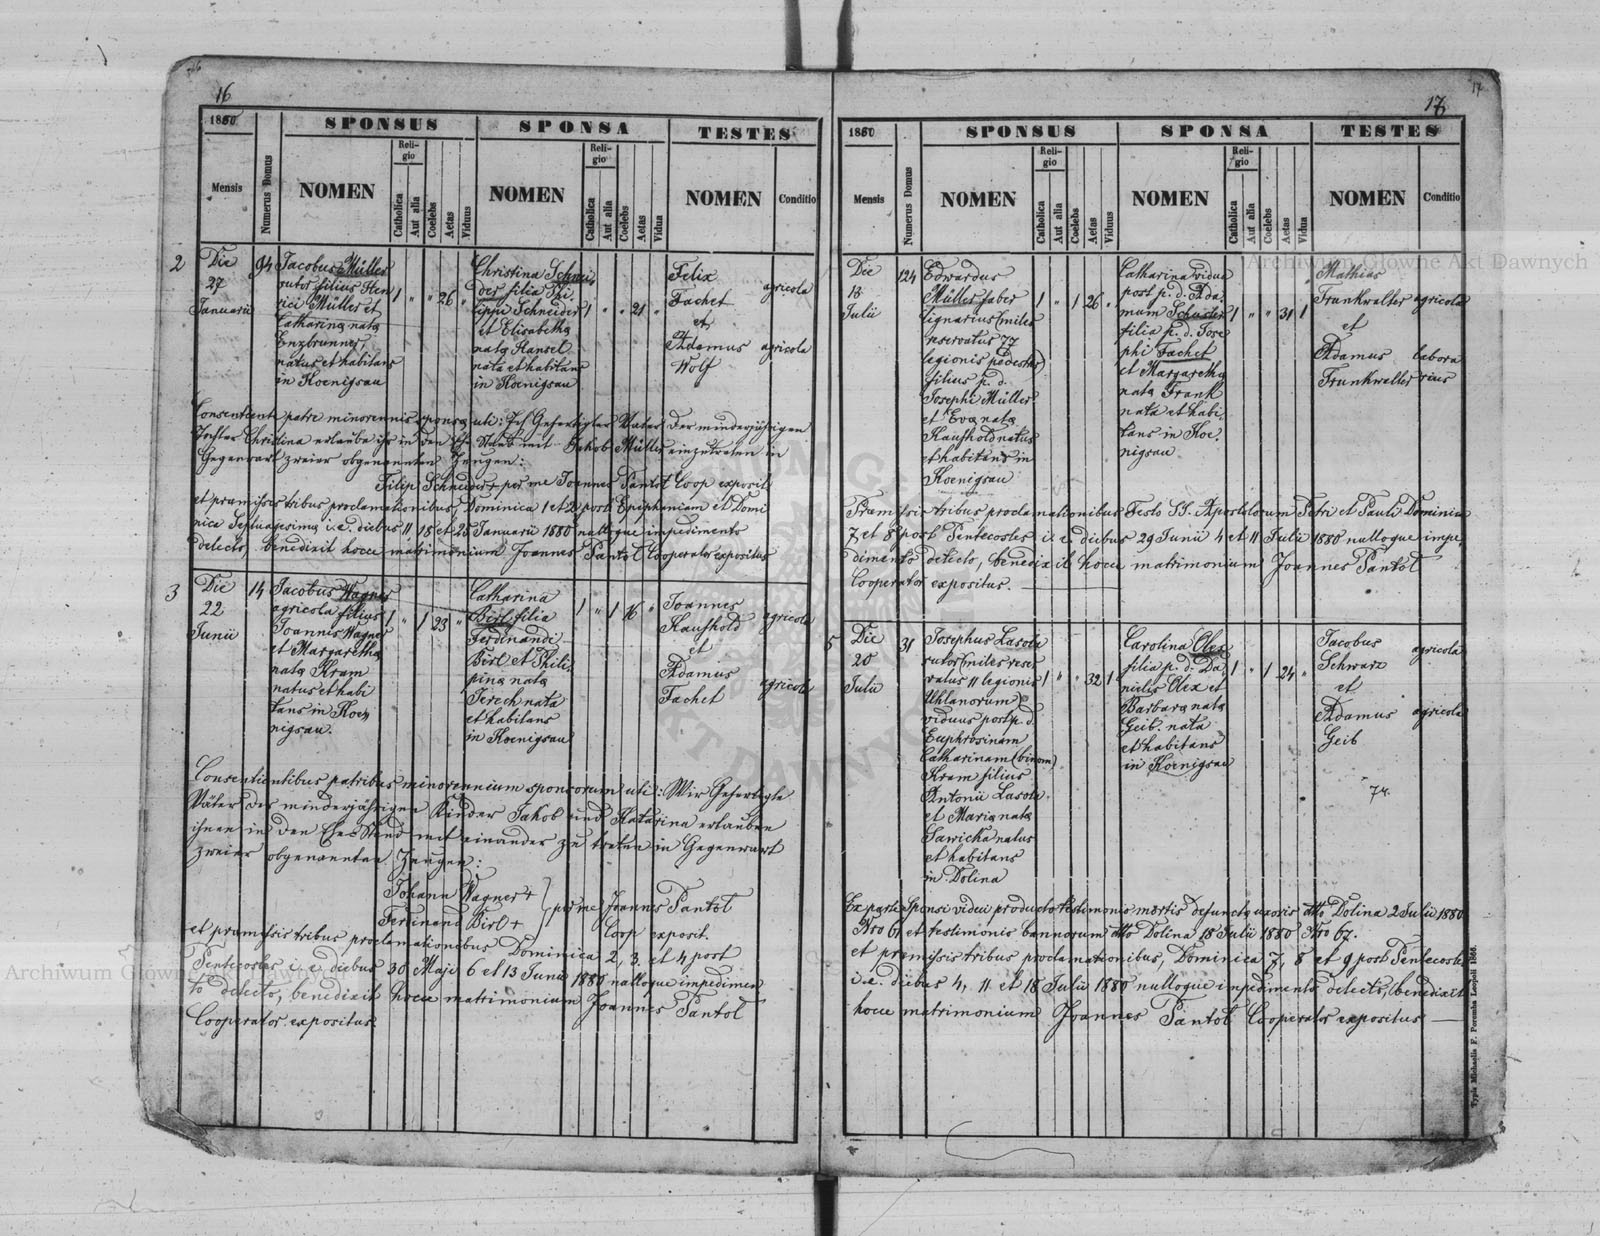 16
1880
SPONSUS
SPONSA
TESTES
Mensis
Numerus Domus
NOMEN
Religio
Catholica
Aut alia
Coelebs
Aetas
Viduus
NOMEN
Religio
Catholica
Aut alia
Coelebs
Aetas
Vidua
NOMEN
Conditio
2
Die
27
Januarii
94
Jacobus Müller
sutor filius Hen
rici Müller et
Catharina nata
Enzbrunner
natus et habitans
in Koenigsau
1 " " 26 "
Christina Schnei
der filia Phi
lippi Schneider
et Elisabetha
nata Hansel
nata et habitans
in Koenigsau
1 " " 21 "
Felix
Fachet
et
Adamus
Wolf
agricola
agricola
Consentiente patre minorennis sponsa uti: Ich Gefertigter Vater der minderjährigen
Tochter Christina erlaube ihr in den Ehe Stand mit Jakob Müller einzutreten in
Gegenwart zweier obgenannten Zeugen:
Filip Schneider + per me Joannes Pantol Coop exposit
et præmissis tribus proclamationibus, Dominica 1 et 2 post Epiphaniam et Domi
nica Septuagesima i. e. diebus 11 18 et 25 Januarii 1880 nulloque impedimento
detecto, benedixit hocce matrimonium Joannes Pantol Cooperator expositus
3
Die
22
Junii
14
Jacobus Wagner
agricola filius
Joannis Wagner
et Margaretha
nata Kram
natus et habi
tans in Koe
nigsau.
1 " 1 23 "
Catharina
Birl filia
Ferdinandi
Birl et Phili
pina nata
Jerech nata
et habitans
in Koenigsau
1 " 1 16 "
Joannes
Kaufhold
et
Adamus
Fachet
agricola
agricola
Consentientibus patribus minorennium sponsorum uti: Wir Gefertigte
Väter der minderjährigen Kinder Jakob und Katarina erlauben
ihnen in den Ehe Stand mit einander zu treten in Gegenwart
zweier obgenannten Zeugen:
Johann Wagner +
Ferdinand Birl +
per me Joannes Pantol
Coop exposit.
et præmissis tribus proclamationibus Dominica 2, 3, et 4 post
Pentecostes i. e. diebus 30 Maji 6 et 13 Junii 1880 nulloque impedimen
to detecto, benedixit hocce matrimonium Joannes Pantol
Cooperator expositus
17
17
1880
SPONSUS
SPONSA
TESTES
Mensis
Numerus Domus
NOMEN
Religio
Catholica
Aut alia
Coelebs
Aetas
Viduus
NOMEN
Religio
Catholica
Aut alia
Coelebs
Aetas
Vidua
NOMEN
Conditio
Die
18
Julii
124
Edwardus
Müller faber
lignarius (miles
reservatus 77
legionis pedestris)
filius p. d.
Josephi Müller
et Eva nata
Kaufhold natus
et habitans in
Koenigsau
1 " 1 26 "
Catharina vidua
post p. d. Ada
mum Schuster
filia p. d. Jose
phi Fachet
et Margaretha
nata Frank
nata et habi
tans in Koe
nigsau
1 " " 31 1
Mathias
Frankwalter
et
Adamus
Frunkwalter
agricola
labora
rius
Præmissis tribus proclamationibus Festo SS. Apostolorum Petri et Pauli Dominica
7 et 8 post Pentecostes i. e. diebus 29 Junii 4 et 11 Julii 1880 nulloque impe
dimento detecto, benedixit hocce matrimonium Joannes Pantol
Cooperator expositus.
5
Die
20
Julii
31
Josephus Lasota
sutor (miles reser
vatus 11 legionis
Uhlanorum)
viduus post p. d.
Euphrosinam
Catharinam (binom)
Kram filius
Antonii Lasota
et Maria nata
Sawicka natus
et habitans
in Dolina
1 " " 32 1
Carolina Olex
filia p. d. Da
nielis Olex et
Barbara nata
Geib. nata
et habitans
in Koenigsau
1 " 1 24 "
Jacobus
Schwarz
et
Adamus
Geib
agricola
agricola
74.
Ex parte Sponsi vidui producto testimonio mortis defuncta uxoris dtto Dolina 2 Julii 1880
Nro 61 et testimonio bannorum dtto Dolina 18 Julii 1880 Nro 67.
et præmissis tribus proclamationibus, Dominica 7, 8 et 9 post Pentecostes
i. e. diebus 4, 11 et 18 Julii 1880 nulloque impedimento detecto, benedixit
hocce matrimonium Joannes Pantol Cooperator expositus
Typis Michaelis F. Poremba Leopoli 1866.
Archiwum Główne Akt Dawnych
Archiwum Główne Akt Dawnych